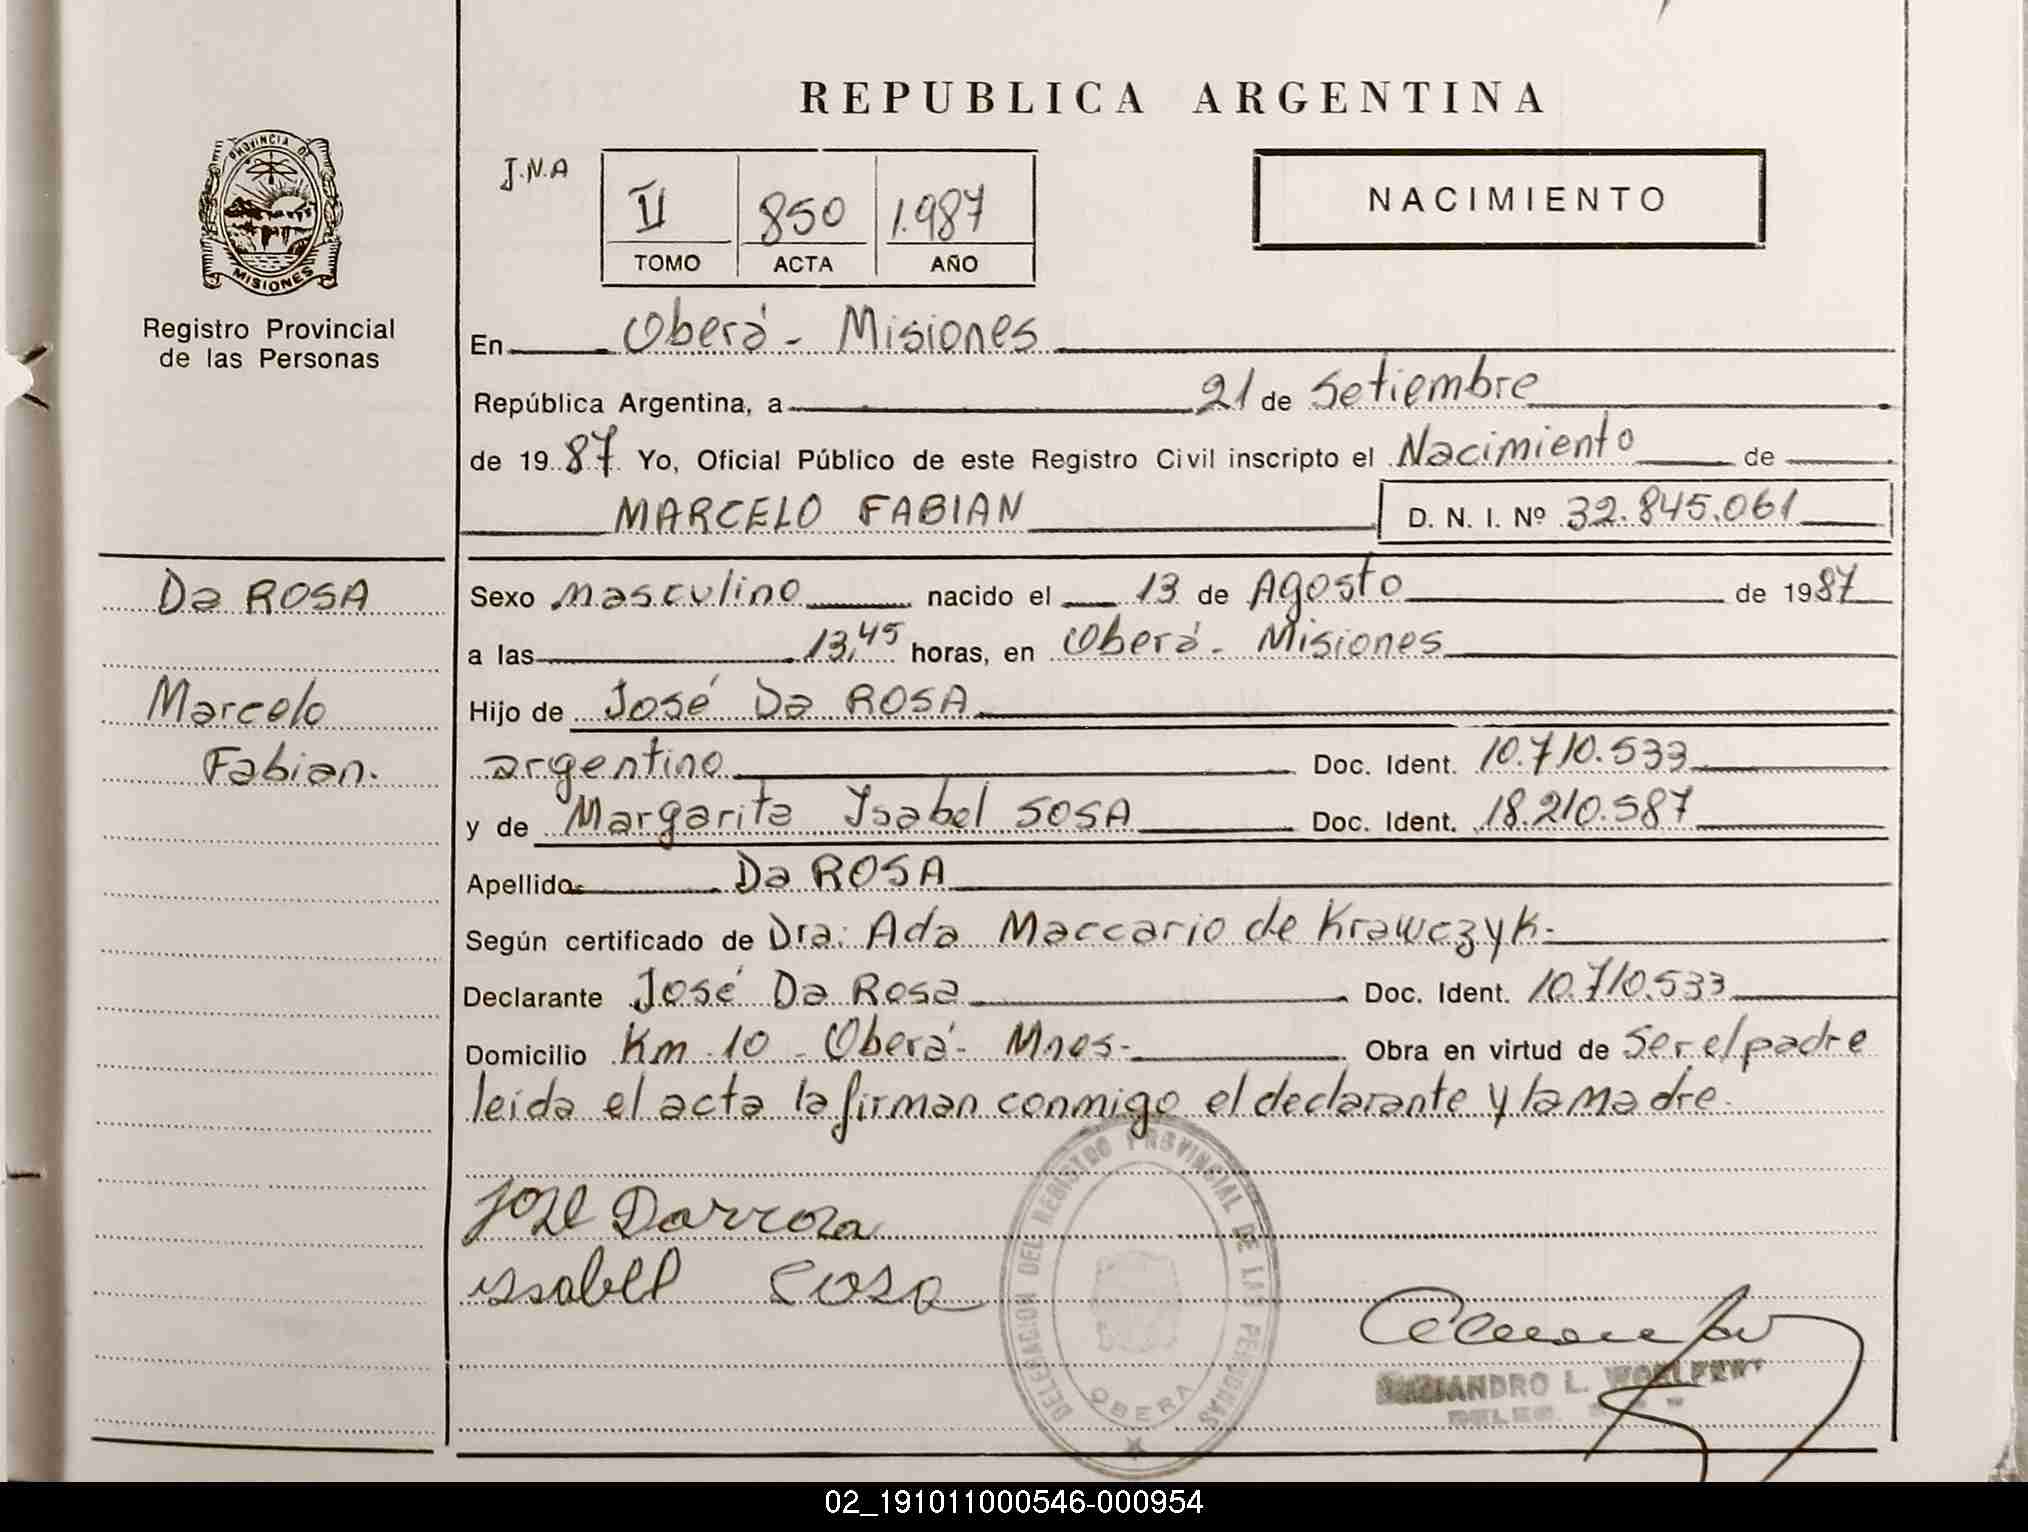 REPUBLICA ARGENTINA
PROVINCIA DE
MISIONES
Registro Provincial
de las Personas
J.N.A
II 850 1.987
TOMO ACTA AÑO
NACIMIENTO
En Oberá - Misiones
República Argentina, a 21 de Setiembre
de 19 87 Yo, Oficial Público de este Registro Civil inscripto el Nacimiento de
MARCELO FABIAN D. N. I. Nº 32.845.061
Da ROSA
Marcelo
Fabian.
Sexo masculino nacido el 13 de Agosto de 1987
a las 13,45 horas, en Oberá - Misiones
Hijo de José Da ROSA
argentino Doc. Ident. 10.710.533
y de Margarita Ysabel SOSA Doc. Ident. 18.210.587
Apellido Da ROSA
Según certificado de Dra: Ada Maccario de Krawczyk.
Declarante José Da Rosa Doc. Ident. 10.710.533
Domicilio Km 10 - Oberá - Mnes- Obra en virtud de Ser el padre
leida el acta la firman conmigo el declarante y la Madre.
DELEGACION DEL REGISTRO PROVINCIAL DE LAS PERSONAS
OBERA
Jose Darroza
issabel Cosa
L.
02_191011000546-000954